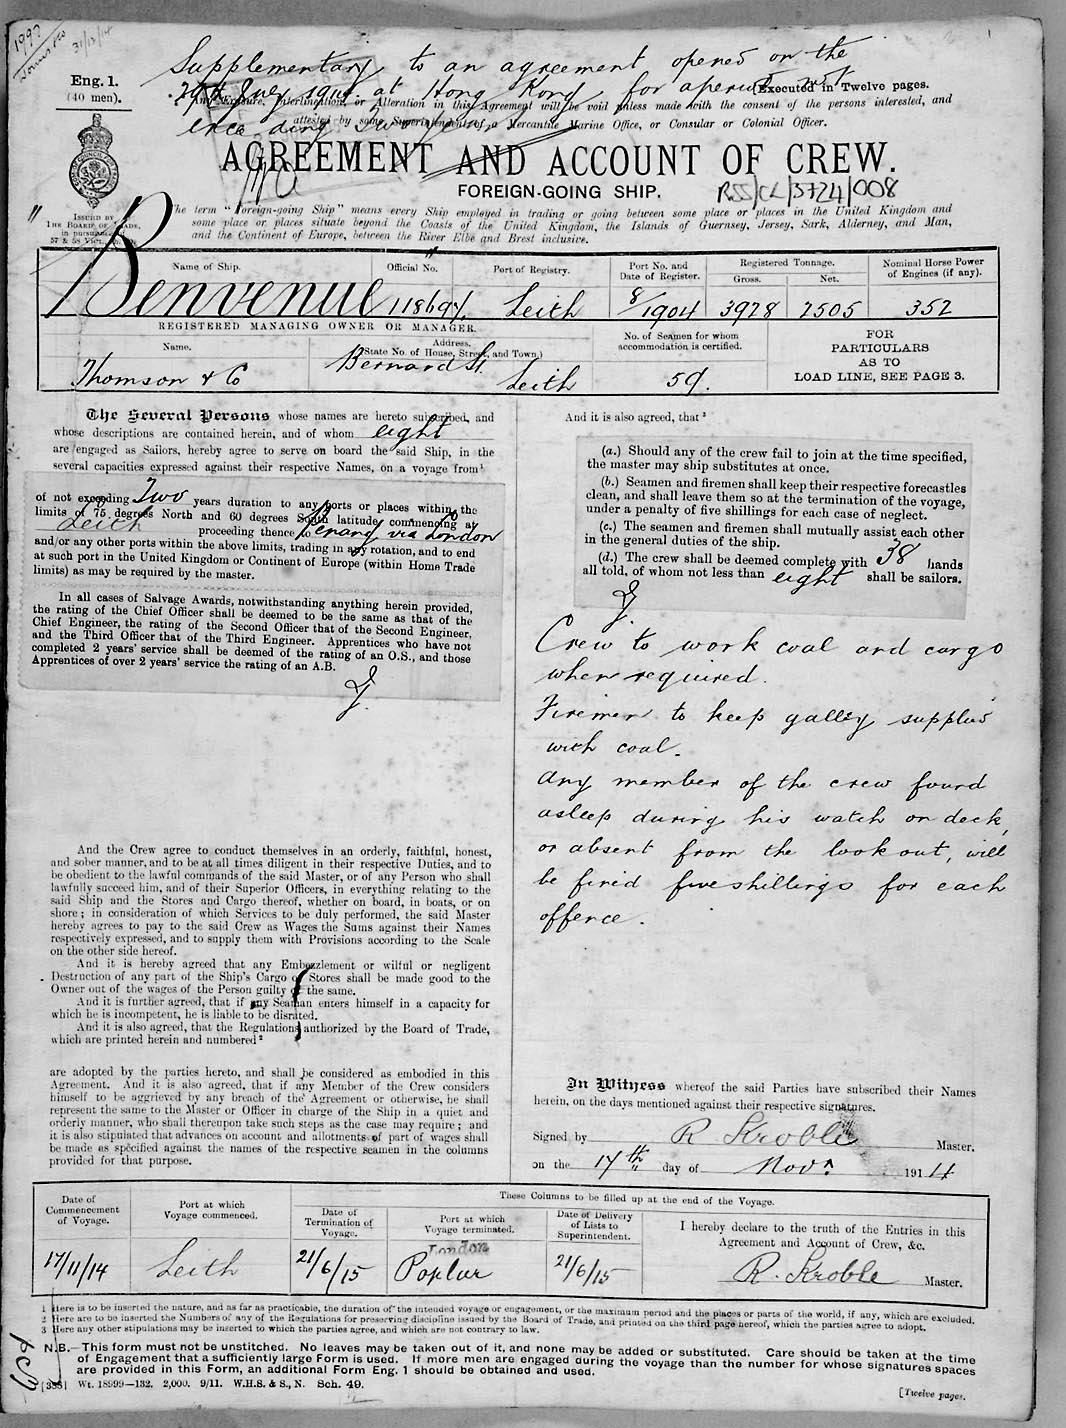 1997
31/12/14
Supplementary to an agreement opened on the
Eng. 1.
(40 men).
29th July 1914 at Hong Kong for a period not
[Executed in Twelve pages.
Any Erasure, Interlineation, or Alteration in this Agreement will be void unless made with the consent of the persons interested, and
exceeding Two years
attested by some Superintendent of a Mercantile Marine Office, or Consular or Colonial Officer.
AGREEMENT AND ACCOUNT OF CREW.
FOREIGN-GOING SHIP.
RSS/CL/3724/008
ISSUED BY
THE BOARD OF TRADE,
in pursuance of
57 & 58 Vict.
The term "Foreign-going Ship" means every Ship employed in trading or going between some place or places in the United Kingdom and
some place or places situate beyond the Coasts of the United Kingdom, the Islands of Guernsey, Jersey, Sark, Alderney, and Man,
and the Continent of Europe, between the River Elbe and Brest inclusive.
Name of Ship.
Official No.
Port of Registry.
Port No. and
Date of Register.
Registered Tonnage.
Gross.
Net.
Nominal Horse Power
of Engines (if any).
"Benvenue"
118697.
Leith
8/1904
3928
2505
352
REGISTERED MANAGING OWNER OR MANAGER.
Name.
Address.
(State No. of House, Street, and Town.)
No. of Seamen for whom
accommodation is certified.
FOR
PARTICULARS
AS TO
LOAD LINE, SEE PAGE 3.
Thomson & Co
Bernard St.
Leith
59.
The Several Persons whose names are hereto subscribed, and
whose descriptions are contained herein, and of whom eight
are engaged as Sailors, hereby agree to serve on board the said Ship, in the
several capacities expressed against their respective Names, on a voyage from¹
of not exceeding Two years duration to any ports or places within the
limits of 75 degrees North and 60 degrees South latitude, commencing at
Leith proceeding thence to Penang via London
and/or any other ports within the above limits, trading in any rotation, and to end
at such port in the United Kingdom or Continent of Europe (within Home Trade
limits) as may be required by the master.
In all cases of Salvage Awards, notwithstanding anything herein provided,
the rating of the Chief Officer shall be deemed to be the same as that of the
Chief Engineer, the rating of the Second Officer that of the Second Engineer,
and the Third Officer that of the Third Engineer. Apprentices who have not
completed 2 years' service shall be deemed of the rating of an O.S., and those
Apprentices of over 2 years' service the rating of an A.B.
And the Crew agree to conduct themselves in an orderly, faithful, honest,
and sober manner, and to be at all times diligent in their respective Duties, and to
be obedient to the lawful commands of the said Master, or of any Person who shall
lawfully succeed him, and of their Superior Officers, in everything relating to the
said Ship and the Stores and Cargo thereof, whether on board, in boats, or on
shore; in consideration of which Services to be duly performed, the said Master
hereby agrees to pay to the said Crew as Wages the Sums against their Names
respectively expressed, and to supply them with Provisions according to the Scale
on the other side hereof.
And it is hereby agreed that any Embezzlement or wilful or negligent
Destruction of any part of the Ship's Cargo or Stores shall be made good to the
Owner out of the wages of the Person guilty of the same.
And it is further agreed, that if any Seaman enters himself in a capacity for
which he is incompetent, he is liable to be disrated.
And it is also agreed, that the Regulations authorized by the Board of Trade,
which are printed herein and numbered²
are adopted by the parties hereto, and shall be considered as embodied in this
Agreement. And it is also agreed, that if any Member of the Crew considers
himself to be aggrieved by any breach of the Agreement or otherwise, he shall
represent the same to the Master or Officer in charge of the Ship in a quiet and
orderly manner, who shall thereupon take such steps as the case may require; and
it is also stipulated that advances on account and allotments of part of wages shall
be made as specified against the names of the respective seamen in the columns
provided for that purpose.
And it is also agreed, that³
(a.) Should any of the crew fail to join at the time specified,
the master may ship substitutes at once.
(b.) Seamen and firemen shall keep their respective forecastles
clean, and shall leave them so at the termination of the voyage,
under a penalty of five shillings for each case of neglect.
(c.) The seamen and firemen shall mutually assist each other
in the general duties of the ship.
(d.) The crew shall be deemed complete with 38 hands
all told, of whom not less than eight shall be sailors.
Crew to work coal and cargo
when required.
Firemen to keep galley supplied
with coal.
Any member of the crew found
asleep during his watch on deck,
or absent from the look out, will
be fined five shillings for each
offence.
In Witness whereof the said Parties have subscribed their Names
herein, on the days mentioned against their respective signatures.
Signed by R Kroble Master.
on the 17th day of Novr 1914
Date of
Commencement
of Voyage.
Port at which
Voyage commenced.
These Columns to be filled up at the end of the Voyage.
Date of
Termination of
Voyage.
Port at which
Voyage terminated.
Date of Delivery
of Lists to
Superintendent.
I hereby declare to the truth of the Entries in this
Agreement and Account of Crew, &c.
17/11/14
Leith
21/6/15
London
Poplar
21/6/15
R. Kroble Master.
1 Here is to be inserted the nature, and as far as practicable, the duration of the intended voyage or engagement, or the maximum period and the places or parts of the world, if any, which are excluded.
2 Here are to be inserted the Numbers of any of the Regulations for preserving discipline issued by the Board of Trade, and printed on the third page hereof, which the parties agree to adopt.
3 Here any other stipulations may be inserted to which the parties agree, and which are not contrary to law.
N.B.—This form must not be unstitched. No leaves may be taken out of it, and none may be added or substituted. Care should be taken at the time
of Engagement that a sufficiently large Form is used. If more men are engaged during the voyage than the number for whose signatures spaces
are provided in this Form, an additional Form Eng. 1 should be obtained and used.
[355] Wt. 18999—132. 2,000. 9/11. W.H.S. & S., N. Sch. 49.
[Twelve pages.